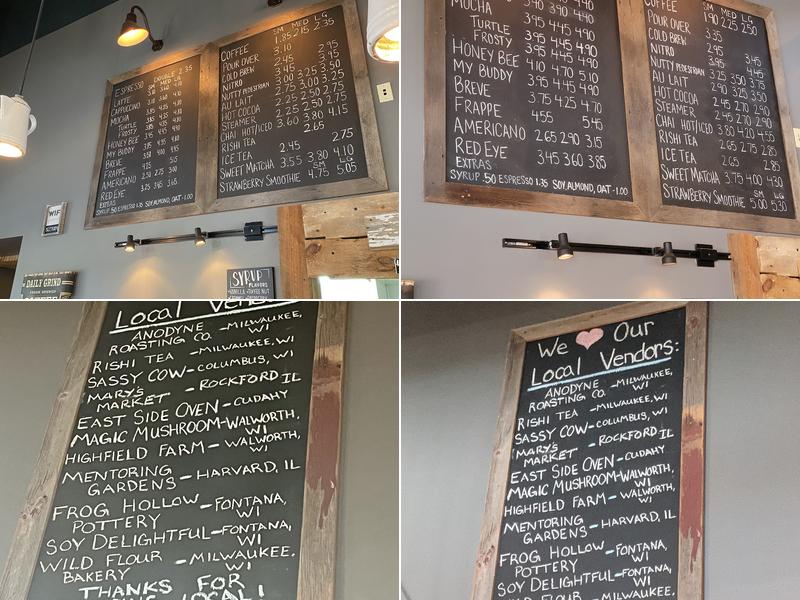 ESPRESSO DOUBLE 2.35
SM MED LG
LATTE
CAPPUCCINO
MOCHA
TURTLE
FROSTY
HONEY BEE
MY BUDDY
BREVE
FRAPPE
AMERICANO
RED EYE
EXTRAS
SYRUP .50 ESPRESSO 1.35 SOY, ALMOND, OAT -1.00
SM MED LG
COFFEE 1.85 2.15 2.35
POUR OVER 3.10
COLD BREW 2.95
NITRO 3.45 3.95
NUTTY PEDESTRIAN 3.00 3.25 3.50
AU LAIT 2.75 3.00 3.25
HOT COCOA 2.25 2.50 2.75
STEAMER 2.25 2.50 2.75
CHAI HOT/ICED 3.60 3.80 4.15
RISHI TEA 2.65
ICE TEA 2.45 2.75
SWEET MATCHA 3.55 3.80 4.10
SM LG
STRAWBERRY SMOOTHIE 4.75 5.05
WIFI
DAILY GRIND
SYRUP
FLAVORS
MOCHA
TURTLE 3.95 4.45 4.90
FROSTY 3.95 4.45 4.90
HONEY BEE 3.95 4.45 4.90
MY BUDDY 4.10 4.70 5.10
BREVE 3.95 4.45 4.90
FRAPPE 3.75 4.25 4.70
4.55 5.45
AMERICANO 2.65 2.90 3.15
RED EYE 3.45 3.60 3.85
EXTRAS
SYRUP .50 ESPRESSO 1.35 SOY, ALMOND, OAT -1.00
SM MED LG
COFFEE 1.90 2.25 2.50
POUR OVER 3.35
COLD BREW
NITRO 3.45
NUTTY PEDESTRIAN 3.95 4.45
AU LAIT 3.25 3.50 3.75
HOT COCOA 2.90 3.25 3.50
STEAMER 2.45 2.70 2.90
CHAI HOT/ICED 2.45 2.70 2.90
RISHI TEA 3.80 4.20 4.55
ICE TEA 2.65
SWEET MATCHA 2.65 2.85
3.75 4.00 4.30
SM LG
STRAWBERRY SMOOTHIE 5.00 5.30
Local Vendors
ANODYNE - MILWAUKEE,
ROASTING CO. WI
RISHI TEA - MILWAUKEE, WI
SASSY COW - COLUMBUS, WI
MARY'S
MARKET - ROCKFORD IL
EAST SIDE OVEN - CUDAHY
MAGIC MUSHROOM - WALWORTH,
WI
HIGHFIELD FARM - WALWORTH,
WI
MENTORING
GARDENS - HARVARD, IL
FROG HOLLOW - FONTANA,
POTTERY WI
SOY DELIGHTFUL - FONTANA,
WI
WILD FLOUR - MILWAUKEE,
BAKERY WI
THANKS FOR
LOCAL!
We Our
Local Vendors:
ANODYNE - MILWAUKEE,
ROASTING CO. WI
RISHI TEA - MILWAUKEE, WI
SASSY COW - COLUMBUS, WI
MARY'S
MARKET - ROCKFORD IL
EAST SIDE OVEN - CUDAHY
MAGIC MUSHROOM - WALWORTH,
WI
HIGHFIELD FARM - WALWORTH,
WI
MENTORING
GARDENS - HARVARD, IL
FROG HOLLOW - FONTANA,
POTTERY WI
SOY DELIGHTFUL - FONTANA,
WI
WILD FLOUR - MILWAUKEE